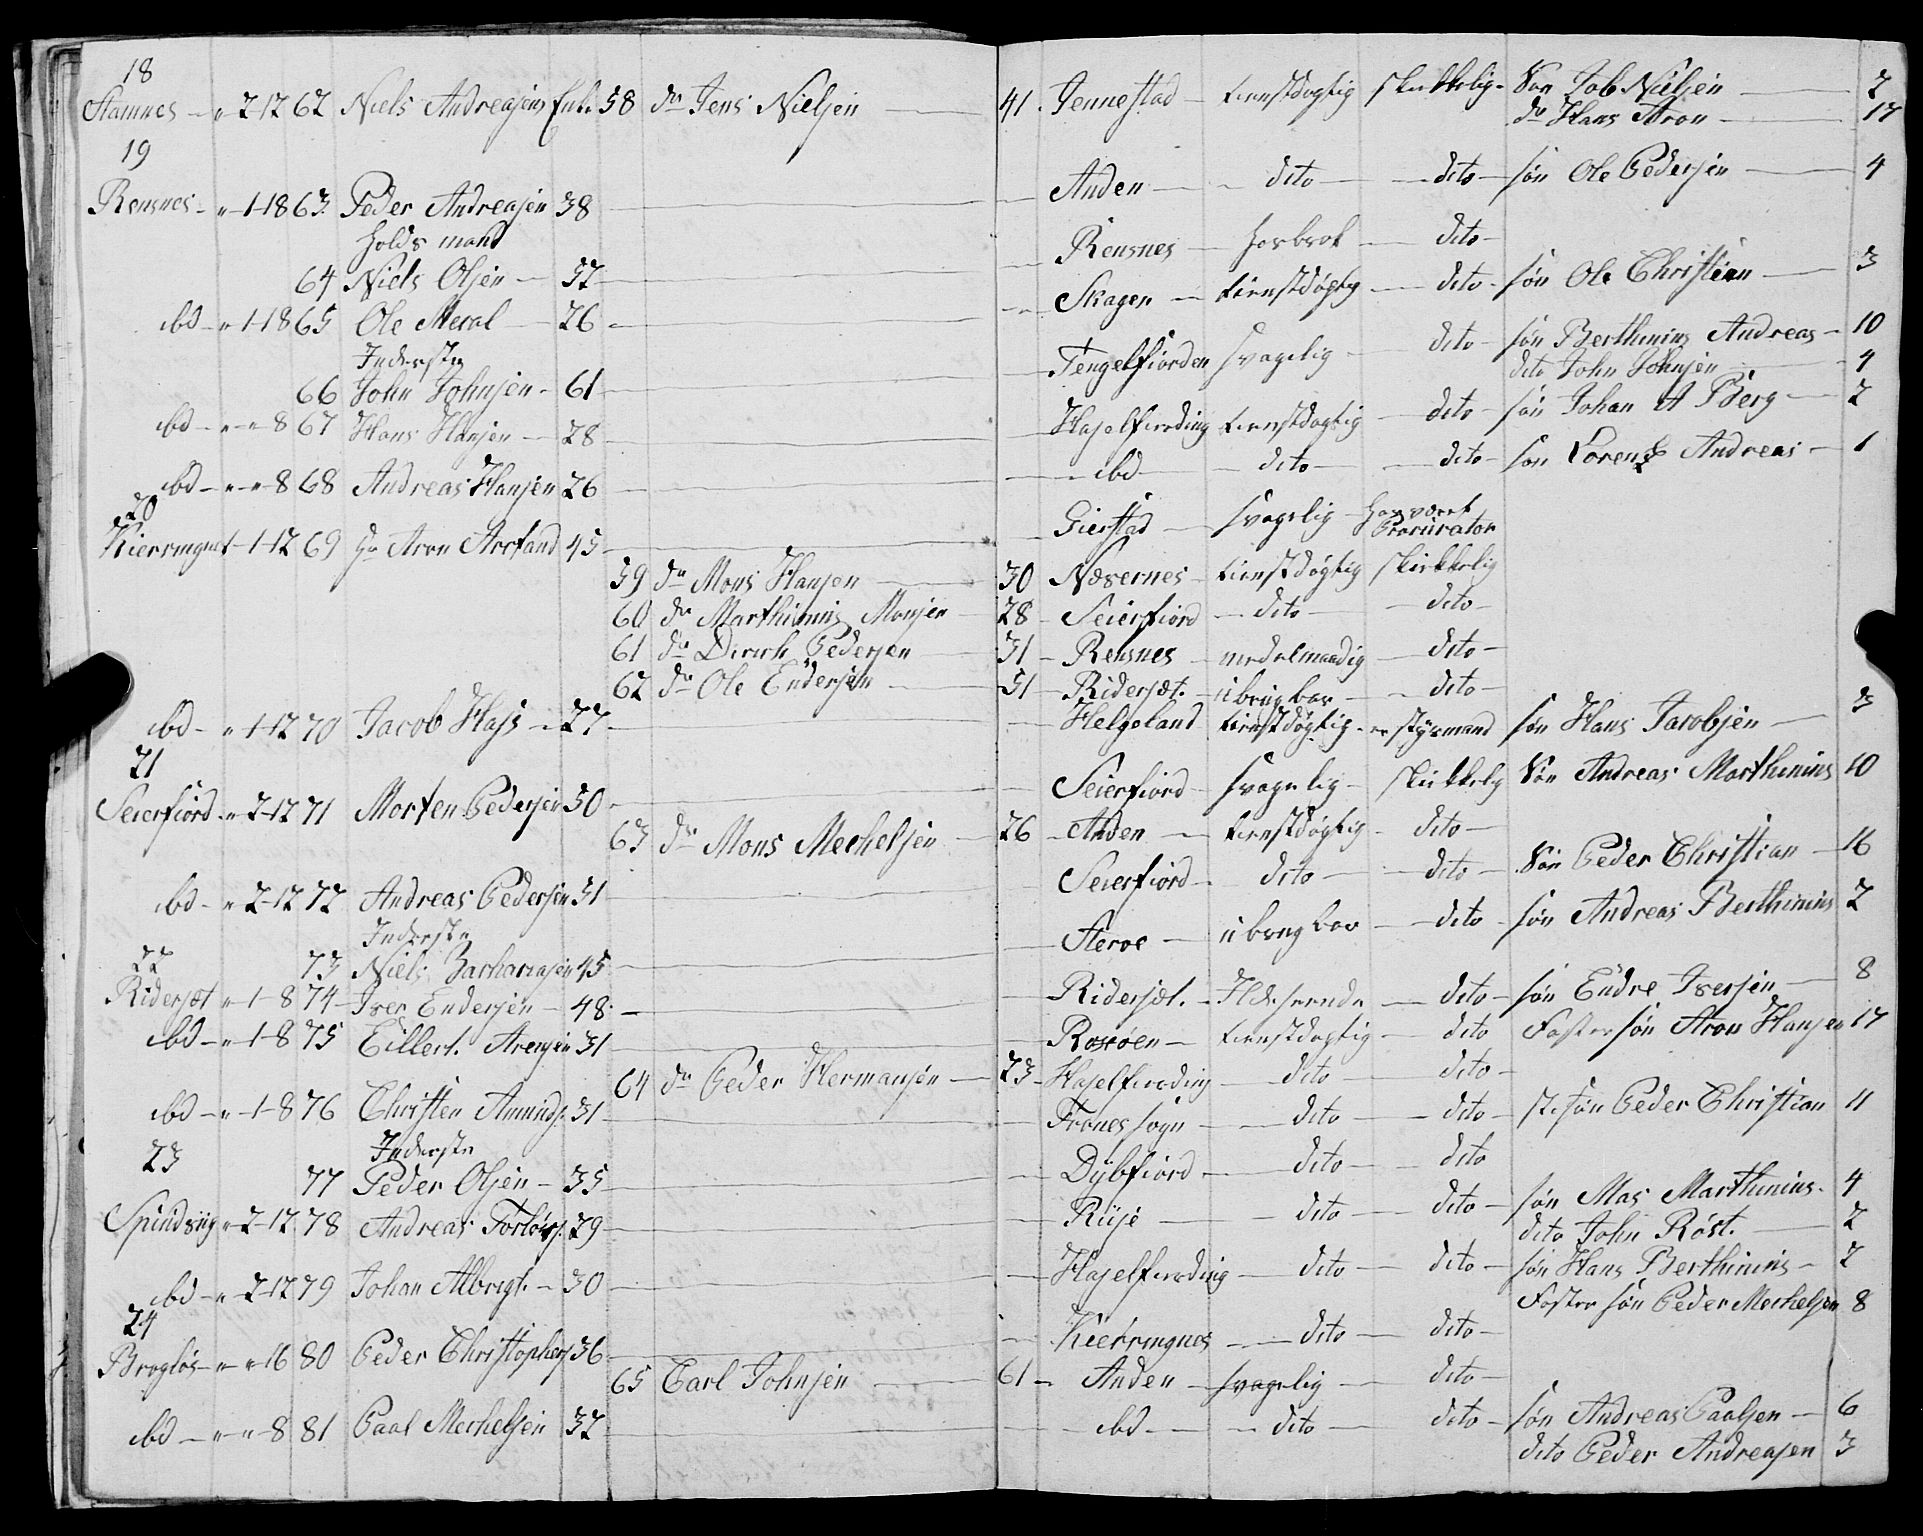 18
Stamnes — " 2-12 62 Niels Andreasen Enk. 58 do Jens Nielsen — 41. Jennestad — tienstdøgtig skikkelig — Søn Job Nielsen — 2
do Hans Aron — 17
19
Rensnes — " — 1-18 63. Peder Andreasen 38 — Anden — dito — dito — søn Ole Pedersen — 4
Holds mand
64 Niels Olsen — 52 — Rensnes — dito —
ibd — " 1-18 65 Ole Meral — 26 — Skagen — tienstdøgtig — dito — søn Ole Christian — 3
Inderste
66 John Johnsen — 61 — Tengelfiorden svagelig — dito — søn Berthinius Andreas — 10
dito John Johnsen — 4
ibd — " — " 8 67 Hans Hansen — 28 — Haselfiording tienstdøgtig — dito — søn Johan A Berg — 2
ibd — " — " 8 68 Andreas Hansen 26 — ibd — dito — dito — søn Lorentz Andreas — 1
20
Kierringnes 1-12 69 Hr Aron Arctand 45 — Gierstad — svagelig Har været Procurator
59 do Mons Hansen — 30 Næsernes — tienstdøgtig skikkelig
60 do Marthinius Monsen — 28 — Seierfiord — dito — dito —
61 do Dirich Pedersen — 31 — Rensnes — medelmaadig — dito —
62 do Ole Endersen — 51 — Ridersæt. — übrugbar — dito —
ibd — " 1-12 70 Jacob Hass — 27 — Helgeland tienstdøgtig — er styrmand søn Hans Jacobsen — 3
21
Seierfiord " 2-12 71 Morten Pedersen 50 — Seierfiord — svagelig — skikkelig Søn Andreas Marthinius 10
63 do Mons Mechelsen — 26 — Anden — tienstdøgtig — dito —
ibd — " 2-12 72 Andreas Pedersen 51 — Seierfiord — dito — dito — Søn Peder Christian — 16
Inderste
73 Niels Zachariasen 45 — Steroe — übrugbar — dito — søn Andreas Berthinius 2
22
Ridersæt " 1-8 74 Iver Endersen — 48 — Ridersæt. — Ildeseende — dito — søn Endre Iversen — 8
ibd — " 1-8 75 Eillert. Arensen 31 — Roxøen — tienstdøgtig — dito Foster søn Aron Hansen 17
64 do Peder Hermansen — 23 — Haselfiording — dito — dito —
ibd — " 1-8 76 Christen Amunds. 31 — Tranes sogn — dito — dito — stifsøn Peder Christian 11
Inderste
77 Peder Olsen — 35 — Dybfiord — dito — dito
23
Spindsüg " 2-12 78 Andreas Torløvs. 29 — Küse — dito — dito — søn Mas Marthinius. 4
dito John Røst. — 2
ibd — " 2-12 79 Johan Albrigt. — 30 — Haselfiording — dito — dito — søn Hans Berthinius — 2
Foster søn Peder Mechelsen 8
24
Brogløs — " — " 16 80 Peder Christophers 36 — Kierringnes — dito — dito —
65 Carl Johnsen — 61 — Anden — svagelig — dito —
ibd — " — " 8 81 Paal Mechelsen 32 — ibd — dito — dito — søn Andreas Paalsen — 6
dito Peder Andreasen 3